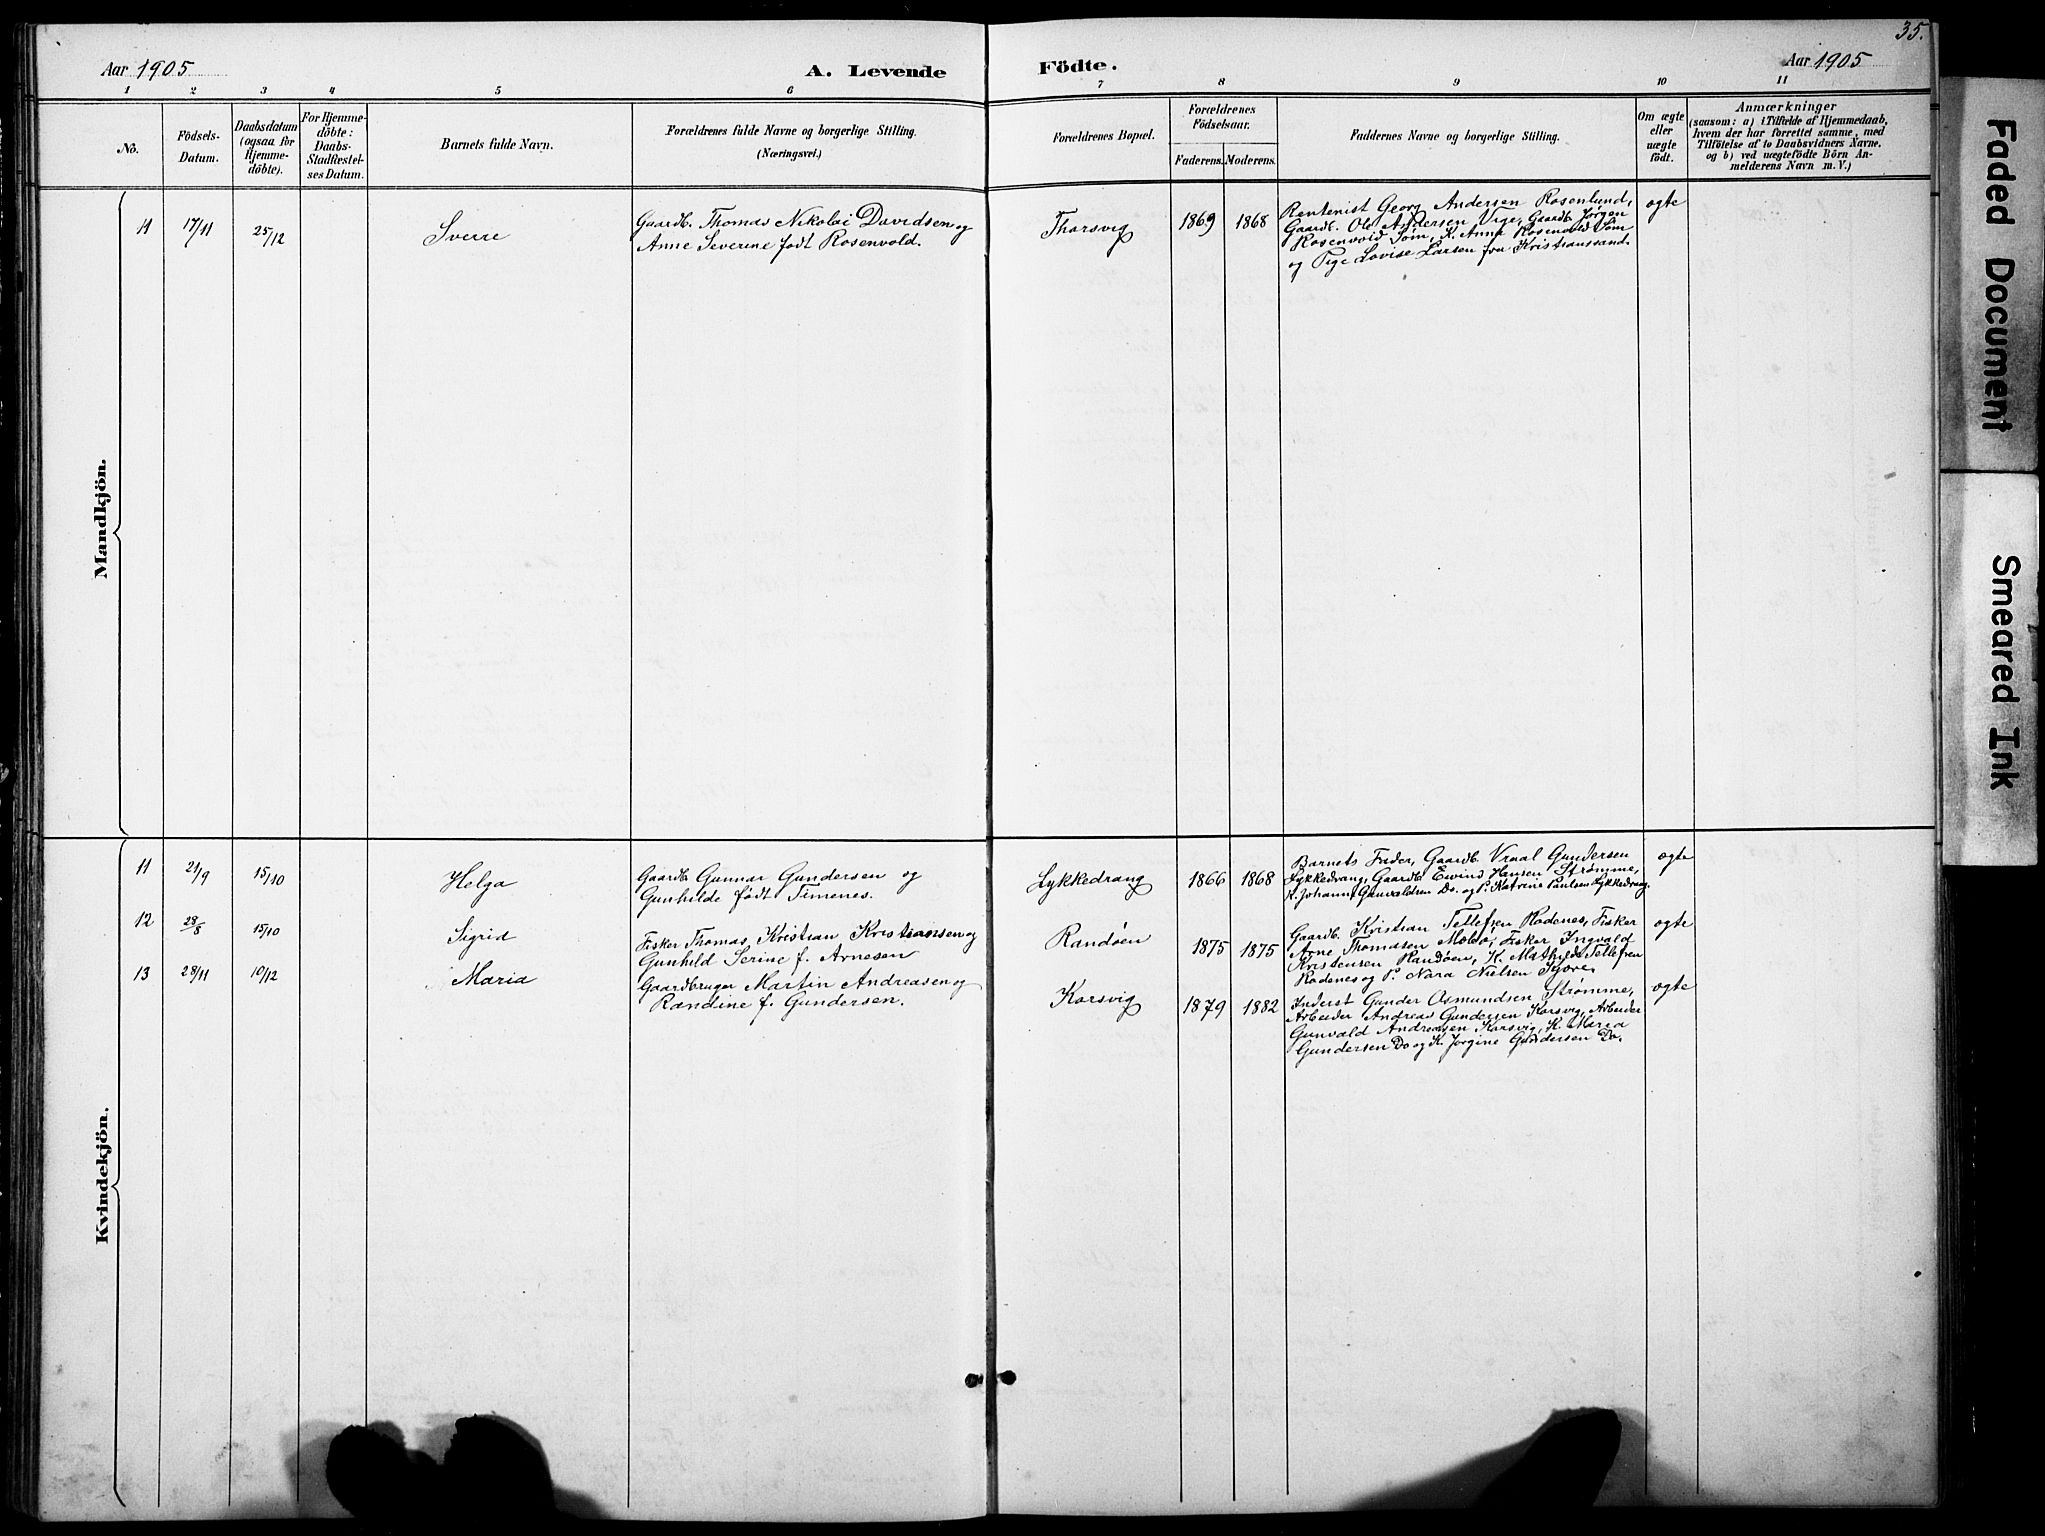 35.
Aar 1905
A. Levende
Födte.
Aar 1905
1 2 3 4 5 6 7 8 9 10 11
No.
Födsels-
Datum.
Daabsdatum
(ogsaa for
Hjemme-
döbte).
For Hjemme-
döbte:
Daabs-
Stadfæstel-
ses Datum.
Barnets fulde Navn.
Forældrenes fulde Navne og borgerlige Stilling.
(Næringsvei.)
Forældrenes Bopæl.
Forældrenes
Födselsaar.
Faderens. Moderens.
Faddernes Navne og borgerlige Stilling.
Om ægte
eller
uægte
födt.
Anmærkninger
(saasom: a) i Tilfælde af Hjemmedaab,
hvem der har forrettet samme, med
Tilföielse af to Daabsvidners Navne,
og b) ved uægtefödte Börn An-
melderens Navn m. V.)
Mandkjön.
11
17/11
25/12
Sverre
Gaardb. Thomas Nikolai Davidsen og
Anne Severine født Rosenvold.
Thorsvig
1869
1868
Rentenist Georg Andersen Rosenlund,
Gaardb. Ole Andersen Vige, Gaardb. Jørgen
Rosenvold Søm, K. Anna Rosenvold Søm
og Pige Lovise Larsen fra Kristianssand.
ogte
Kvindekjön.
11
21/9
15/10
Helga
Gaardb. Gunnar Gundersen og
Gunhilde født Timenes.
Lykkedrang
1866
1868
Barnets Fader, Gaardb. Vraal Gundersen
Lykkedrang, Gaardb. Ewind Hansen Strømme,
K. Johanne Gunvaldsen Do. og P. Katrine Paulsen Lykkedrang.
ogte
12
28/8
15/10
Sigrid
Fisker Thomas Kristian Kristiansen og
Gunhild Serine f. Arnesen
Randøen
1875
1875
Gaardb. Kristian Tellefsen Rodenes, Fisker
Arne Thomasen Molø, Fisker Ingvald
Kristensen Randøen, K. Mathilde Tellefsen
Rodenes og P. Nara Nielsen
ogte
13
28/11
10/12
Maria
Gaardbruger Martin Andreasen og
Randine f. Gundersen.
Korsvig
1879
1882
Inderst Gunder Osmundsen Strømme,
Arbeider Andreas Gundersen Korsvig, Arbeider
Gunvald Andreasen Korsvig, K. Maria
Gundersen Do og K. Jørgine Gundersen Do.
ogte
Faded Document
Smeared Ink